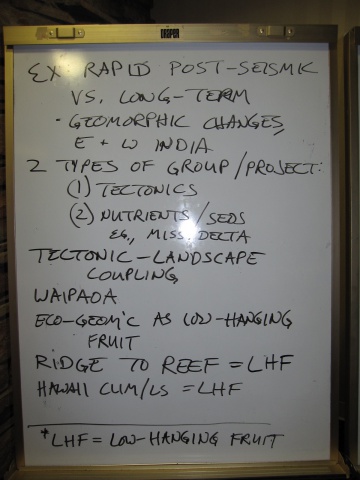 DRAPER
EX. RAPID POST-SEISMIC
VS. LONG-TERM
- GEOMORPHIC CHANGES,
E + W INDIA
2 TYPES OF GROUP/PROJECT:
(1) TECTONICS
(2) NUTRIENTS/SEDS
EG., MISS. DELTA
TECTONIC-LANDSCAPE
COUPLING
WAIPAOA
ECO-GEOM'C AS LOW-HANGING
FRUIT
RIDGE TO REEF = LHF
HAWAII CLIM/LS = LHF
*LHF = LOW-HANGING FRUIT